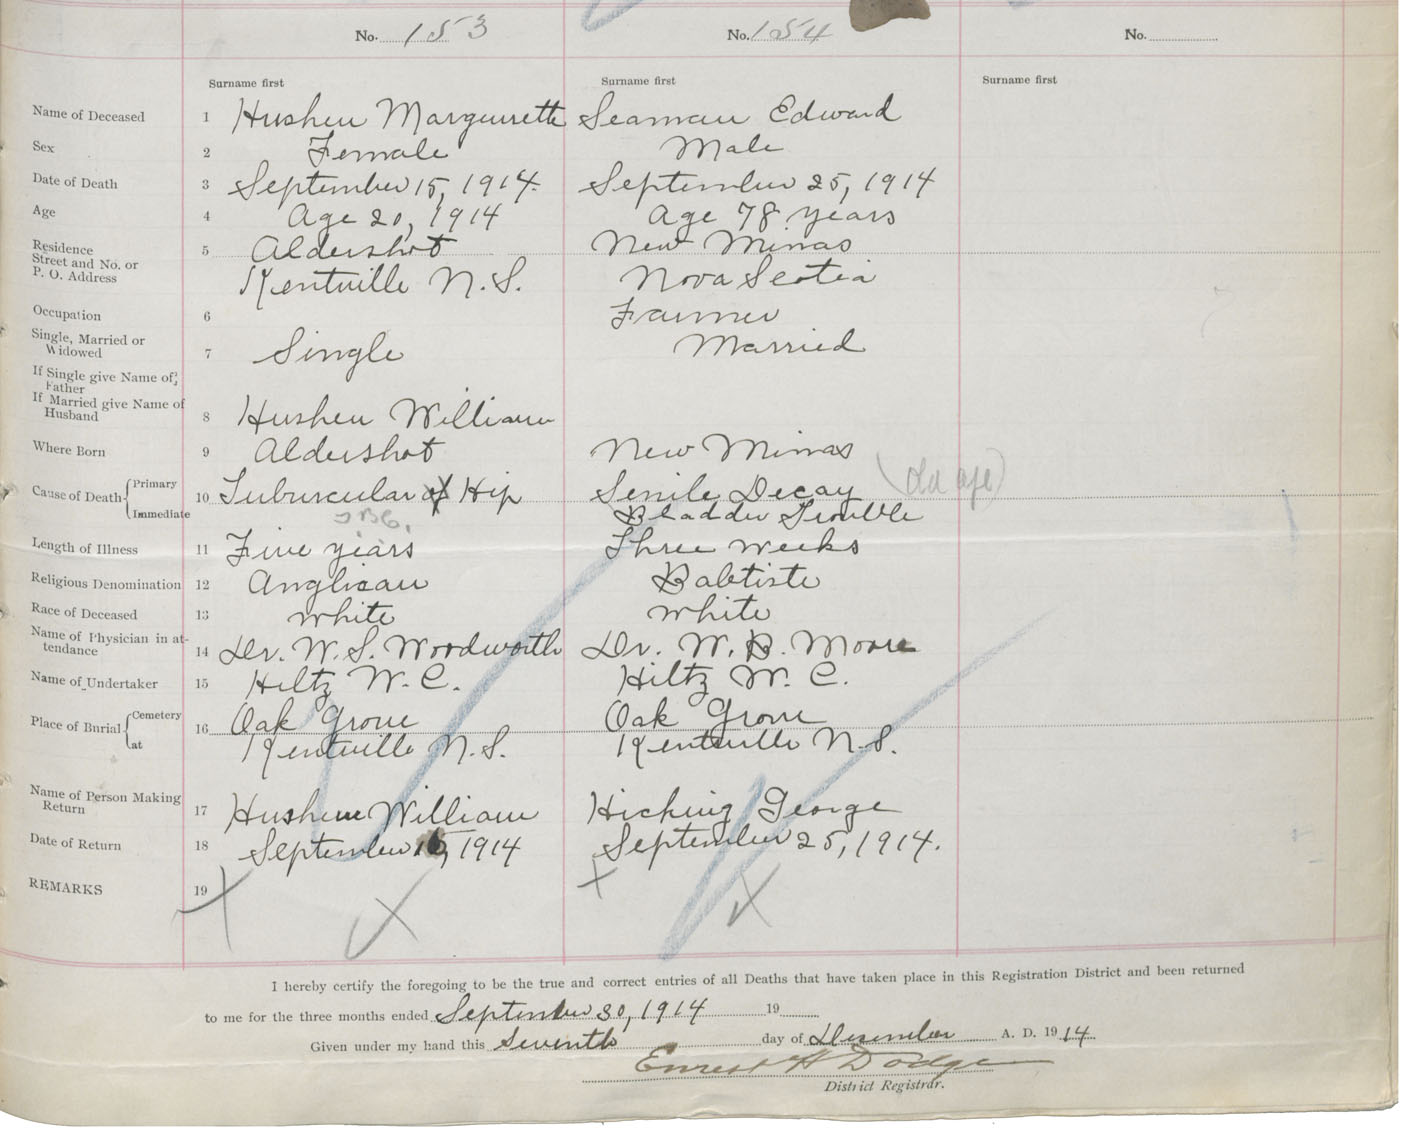 No. 153
No. 154
No.
Surname first
Surname first
Surname first
Name of Deceased 1 Hushen Margurrette Seaman Edward
Sex 2 Female Male
Date of Death 3 September 15, 1914. September 25, 1914
Age 4 Age 20, 1914 Age 78 years
Residence
Street and No. or
P. O. Address
5 Aldershot New Minas
Kentville N.S. Nova Scotia
Occupation 6 Farmer
Single, Married or
Widowed
7 Single Married
If Single give Name of
Father
If Married give Name of
Husband
8 Hushen William
Where Born 9 Aldershot New Minas
Cause of Death Primary
Immediate
10 Tuburcular of Hip Senile Decay (Old age)
TBC. Bladder Trouble
Length of Illness 11 Five years Three weeks
Religious Denomination 12 Anglican Babtiste
Race of Deceased 13 white white
Name of Physician in at-
tendance
14 Dr. W. S. Woodworth Dr. W. B. Moore
Name of Undertaker 15 Hiltz W. C. Hiltz W. C.
Place of Burial Cemetery
at
16 Oak Grove Oak Grove
Kentville N.S. Kentville N.S.
Name of Person Making
Return
17 Hushen William Hicking George
Date of Return 18 September 16, 1914 September 25, 1914.
REMARKS 19
I hereby certify the foregoing to be the true and correct entries of all Deaths that have taken place in this Registration District and been returned
to me for the three months ended September 30, 1914 19
Given under my hand this Seventh day of December A. D. 1914
Ernest H Dodge
District Registrar.